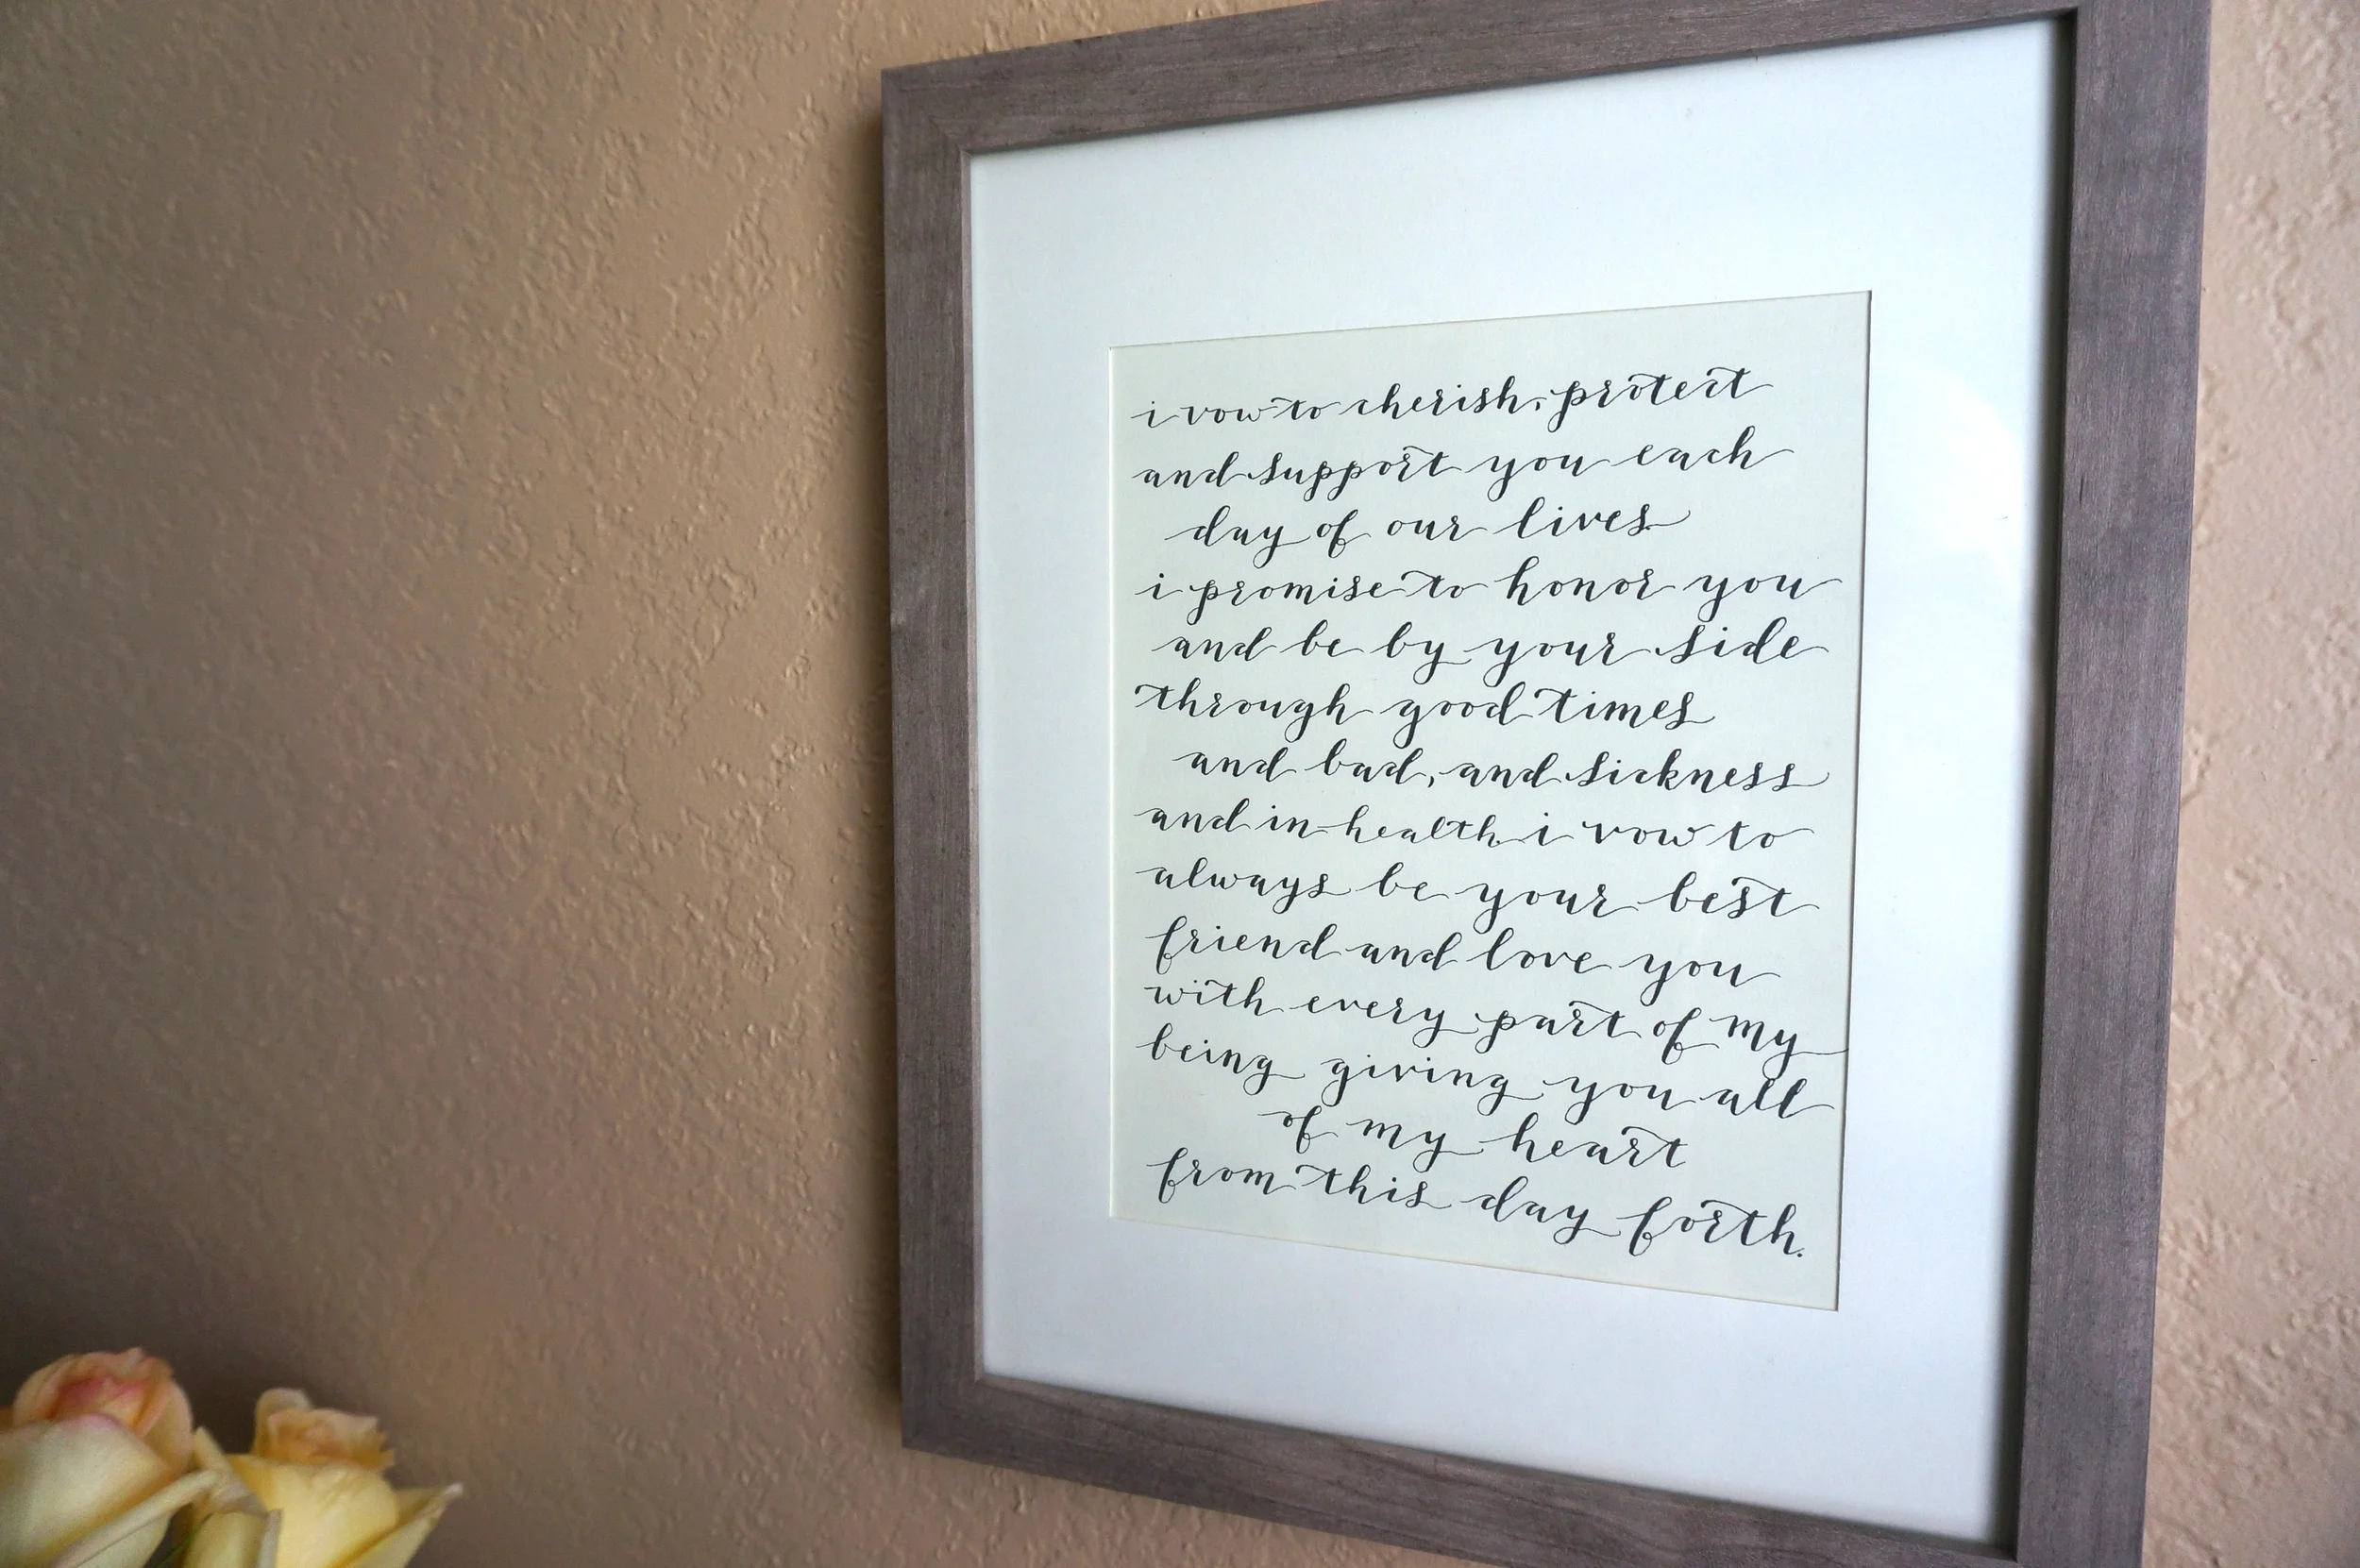 i vow to cherish, protect
and support you each
day of our lives
i promise to honor you
and be by your side
through good times
and bad, and sickness
and in health. i vow to
always be your best
friend and love you
with every part of my
being giving you all
of my heart
from this day forth.